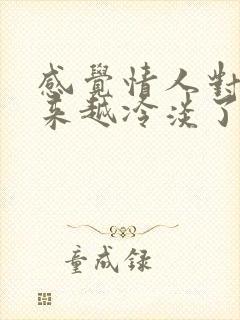 感覺情人對
来越冷淡了
童成録